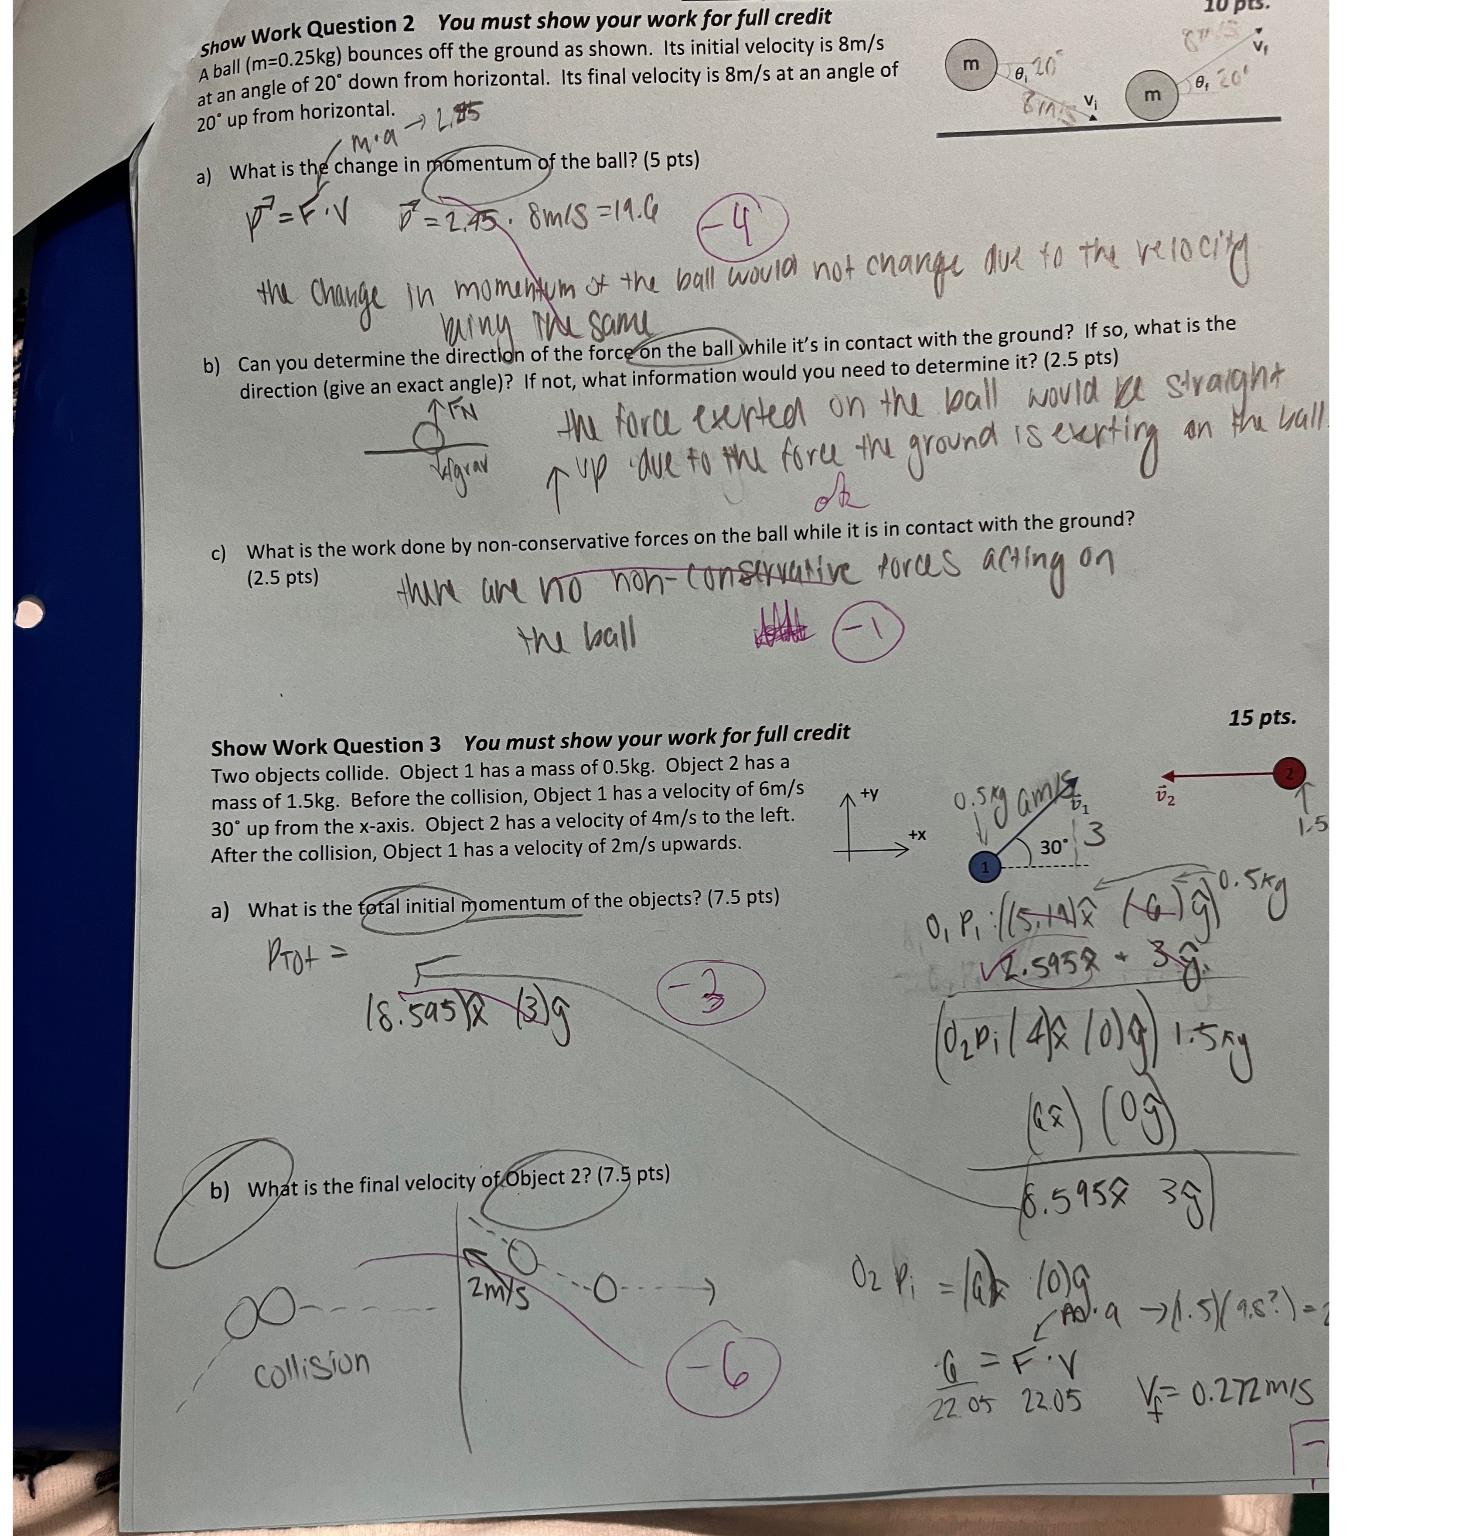 10 pts.
Show Work Question 2 You must show your work for full credit
A ball (m=0.25kg) bounces off the ground as shown. Its initial velocity is 8m/s
at an angle of 20° down from horizontal. Its final velocity is 8m/s at an angle of
20° up from horizontal.
m
θi 20°
8m/s
vi
m
8m/s
vf
θf 20°
m·a →
a) What is the change in momentum of the ball? (5 pts)
p = F·V p = 2.45 · 8m/s = 19.6
-4
the change in momentum of the ball would not change due to the velocity
being the same
b) Can you determine the direction of the force on the ball while it's in contact with the ground? If so, what is the
direction (give an exact angle)? If not, what information would you need to determine it? (2.5 pts)
FN
Fgrav
the force exerted on the ball would be straight
↑ up due to the force the ground is exerting on the ball.
ok
c) What is the work done by non-conservative forces on the ball while it is in contact with the ground?
(2.5 pts)
there are no non-conservative forces acting on
the ball
-1
15 pts.
Show Work Question 3 You must show your work for full credit
Two objects collide. Object 1 has a mass of 0.5kg. Object 2 has a
mass of 1.5kg. Before the collision, Object 1 has a velocity of 6m/s
30° up from the x-axis. Object 2 has a velocity of 4m/s to the left.
After the collision, Object 1 has a velocity of 2m/s upwards.
+y
+x
0.5kg
v1
30° 3
1
v2
2
1.5
a) What is the total initial momentum of the objects? (7.5 pts)
PTot =
(8.595)x̂ (3)ŷ
-3
O1 Pi: ((5.19)x̂ (6)ŷ) 0.5kg
2.595x̂ + 3ŷ
(O2Pi (4)x̂ (0)ŷ) 1.5kg
(6x̂) (0ŷ)
8.595x̂ 3ŷ
b) What is the final velocity of Object 2? (7.5 pts)
2m/s
collision
-6
O2 Pi = (6)x̂ (0)ŷ
·a → (1.5)(9.8²) =
6 = F·V
22.05 22.05
Vf = 0.272m/s